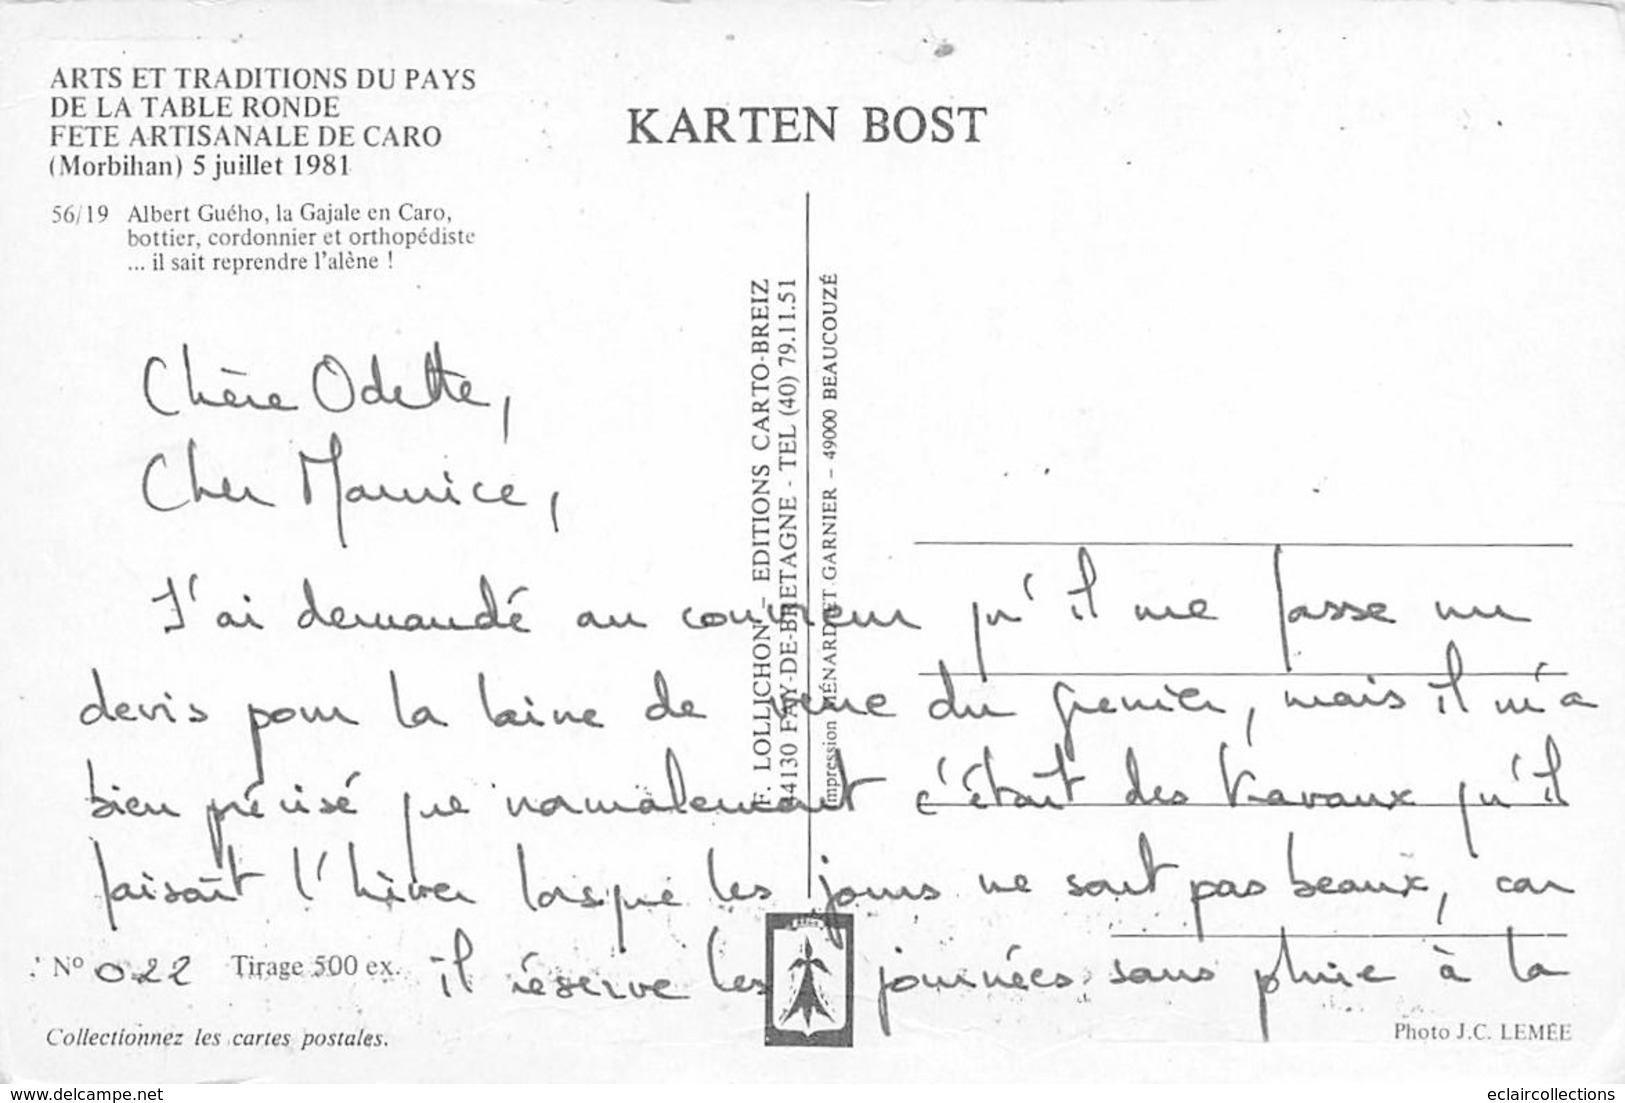 ARTS ET TRADITIONS DU PAYS
DE LA TABLE RONDE
FETE ARTISANALE DE CARO
(Morbihan) 5 juillet 1981
56/19 Albert Guého, la Gajale en Caro,
bottier, cordonnier et orthopédiste
... il sait reprendre l'alène !
KARTEN BOST
F. LOLLICHON – EDITIONS CARTO-BREIZ
44130 FAY-DE-BRETAGNE - TEL (40) 79.11.51
Impression MÉNARD ET GARNIER – 49000 BEAUCOUZÉ
Chère Odette,
Cher Maurice,
J'ai demandé au couvreur qu'il me fasse un
devis pour la laine de verre du grenier, mais il m'a
bien précisé que normalement c'était des travaux qu'il
faisait l'hiver lorsque les jours ne sont pas beaux, car
il réserve les journées sans pluie à la
N° 022 Tirage 500 ex.
Collectionnez les cartes postales.
Photo J.C. LEMÉE
www.delcampe.net
eclaircollections